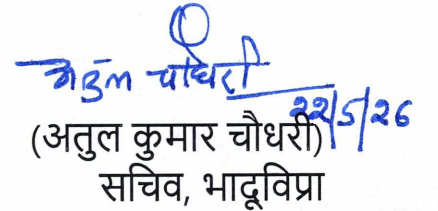 अतुल चौधरी
22/5/26
(अतुल कुमार चौधरी)
सचिव, भादूविप्रा